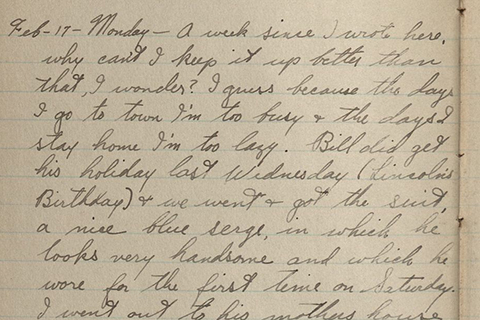 Feb-17- Monday- A week since I wrote here,
why can't I keep it up better than
that, I wonder? I guess because the days
I go to town I'm too busy & the days I
stay home I'm too lazy. Bill did get
his holiday last Wednesday (Lincoln's
Birthday) & we went & got the suit,
a nice blue serge, in which he
looks very handsome and which he
wore for the first time on Saturday.
I went out to his mothers house